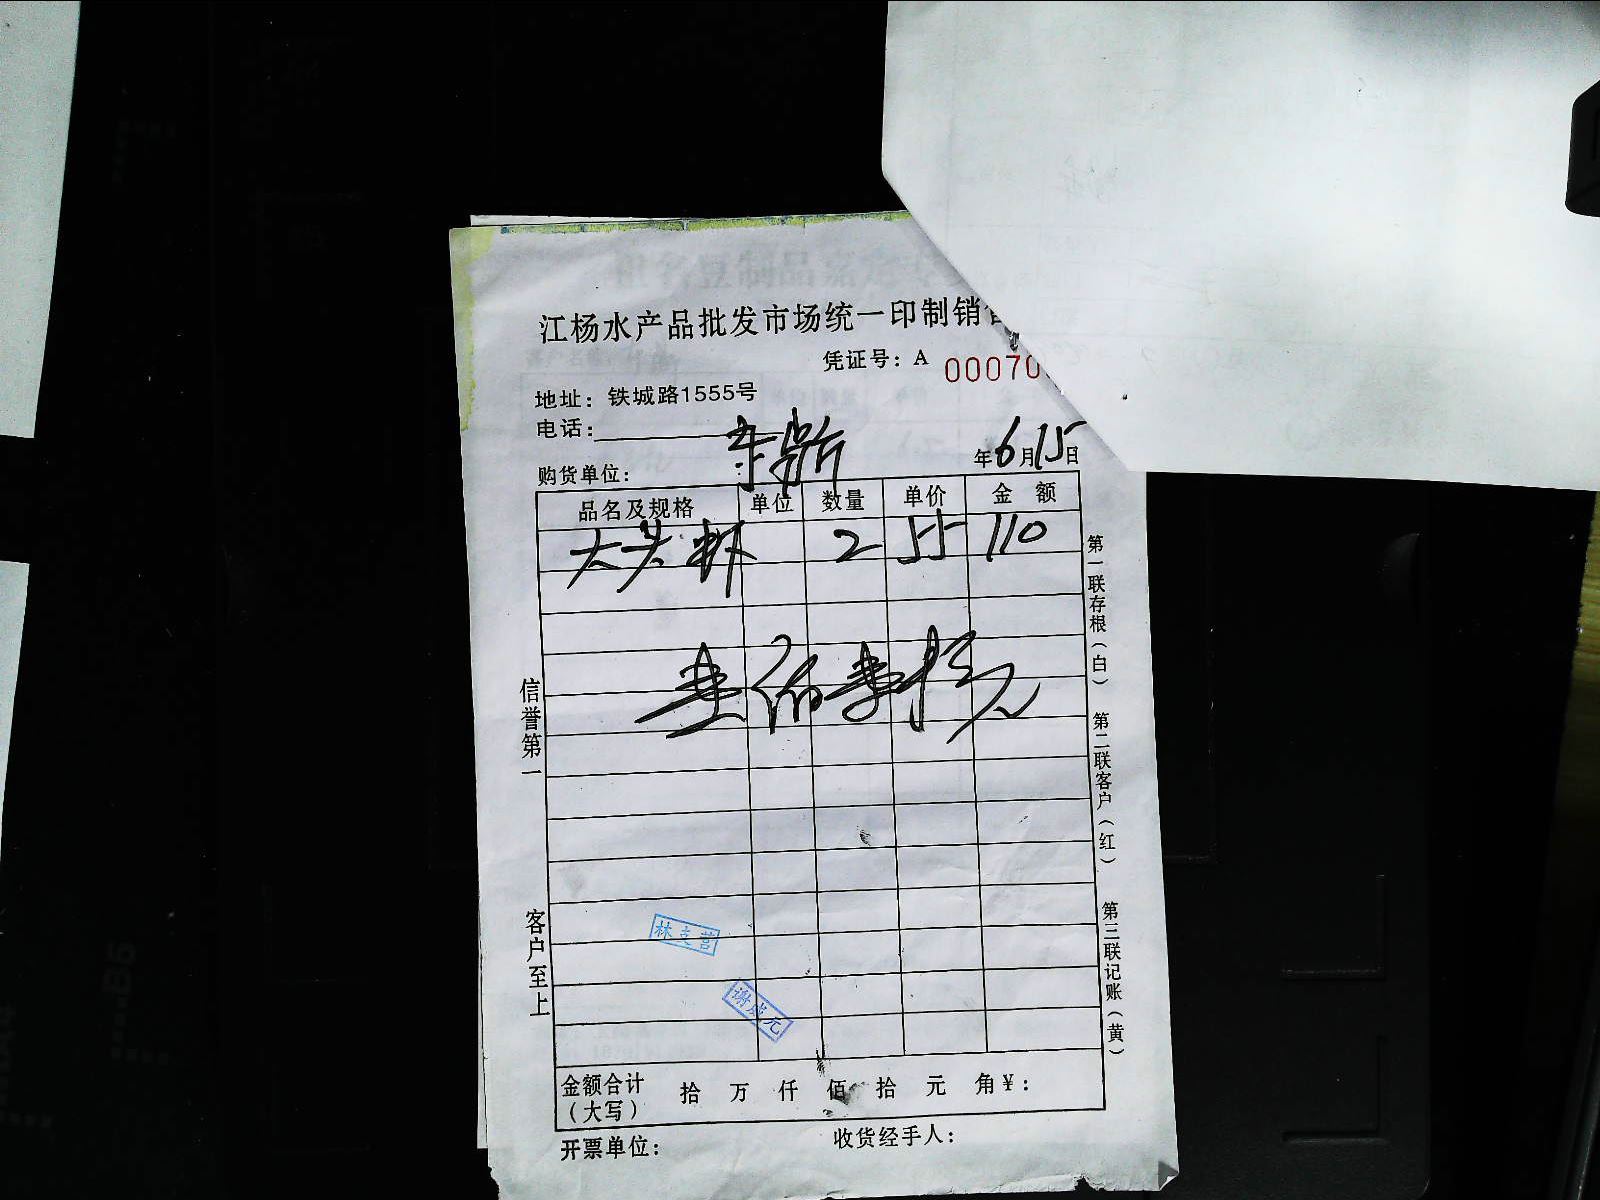 江杨水产品批发市场统一印制销售
凭证号：A 00070
地址：铁城路1555号
电话：
购货单位： 年6月15日
品名及规格 单位 数量 单价 金额
大头虾 2 55 110
壹佰壹拾元
信誉第一
客户至上
第一联存根（白）
第二联客户（红）
第三联记账（黄）
林支营
谢成元
金额合计（大写） 拾 万 仟 佰 拾 元 角 ¥：
开票单位： 收货经手人：